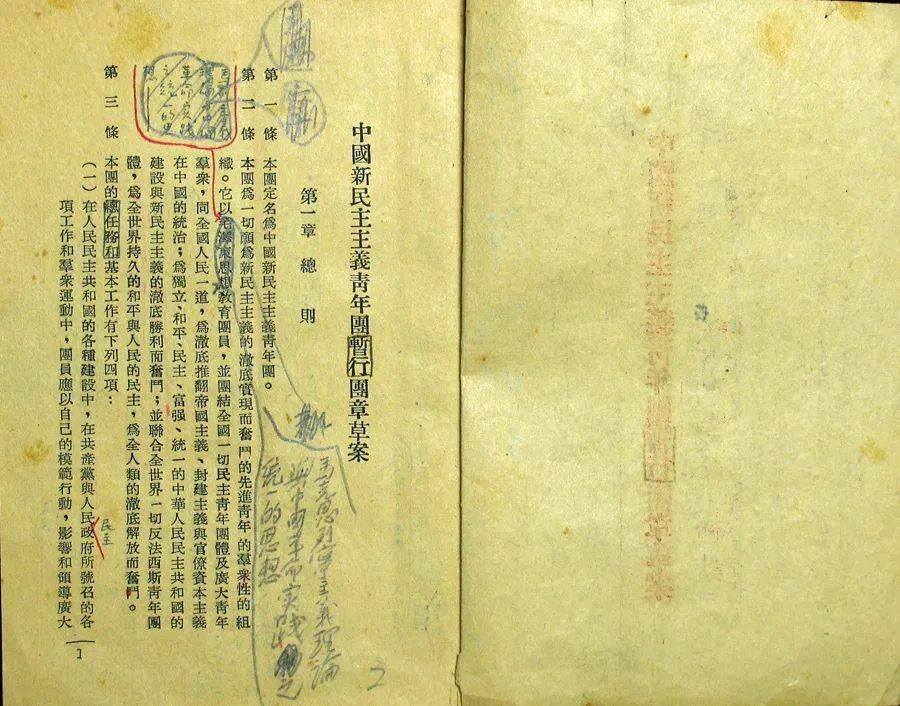 中國新民主主義青年團暫行團章草案
第一章 總則
第一條 本團定名爲中國新民主主義青年團。
第二條 本團爲一切願爲新民主主義的澈底實現而奮鬥的先進青年的羣衆性的組
織。它以毛澤東思想教育團員，並團結全國一切民主青年團體及廣大青年
羣衆，同全國人民一道，爲澈底推翻帝國主義、封建主義與官僚資本主義
在中國的統治；爲獨立、和平、民主、富强、統一的中華人民民主共和國的
建設與新民主主義的澈底勝利而奮鬥；並聯合全世界一切反法西斯青年團
體，爲全世界持久的和平與人民的民主，爲全人類的澈底解放而奮鬥。
第三條 本團的總任務和基本工作有下列四項：
（一）在人民民主共和國的各種建設中，在共產黨與人民政府所號召的各
項工作和羣衆運動中，團員應以自己的模範行動，影響和領導廣大
民主
主義理論
與中國革命實踐
統一的思想
2
1